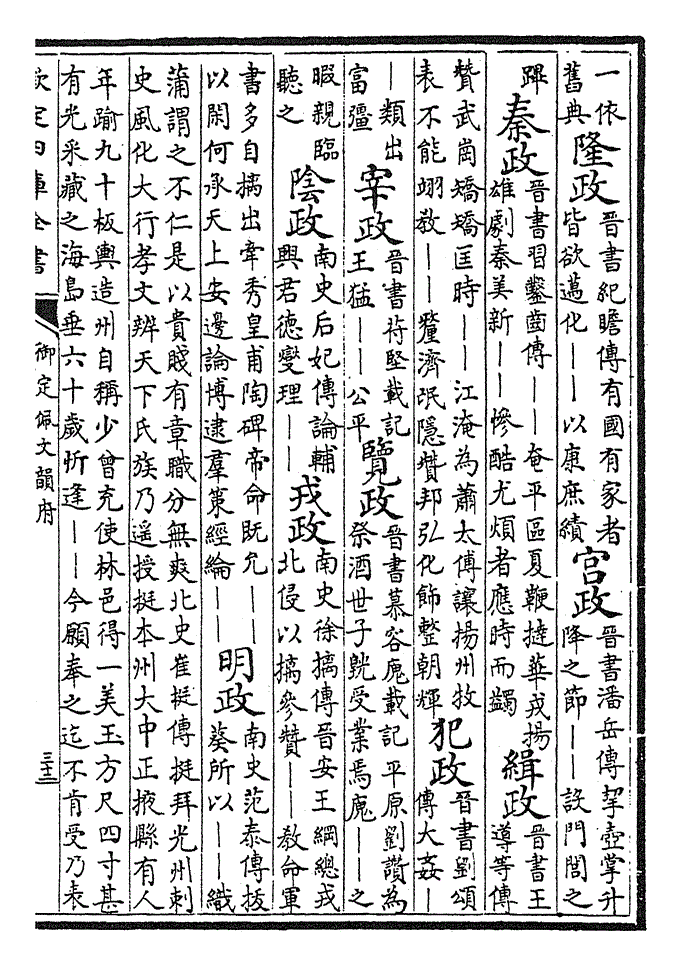 一依
舊典
隆政
晉書紀瞻傳有國有家者
皆欲邁化——以康庶績
宫政
晉書潘岳傳挈壺掌升
降之節——設門閭之
蹕
秦政
晉書習鑿齒傳——奄平區夏鞭撻華戎揚
雄劇秦美新——慘酷尤煩者應時而蠲
緝政
晉書王
導等傳
贊武崗矯矯匡時——江淹為蕭太傅讓揚州牧
表不能翊敎——釐濟氓隱贊邦弘化飾整朝輝
犯政
晉書劉頌
傳大姦—
—類出
富彊
宰政
晉書苻堅載記
王猛——公平
覽政
晉書慕容廆載記平原劉讚為
祭酒世子皝受業焉廆——之
暇親臨
聽之
陰政
南史后妃傳論輔
興君德燮理——
戎政
南史徐摛傳晉安王綱總戎
北侵以摛參贊——敎命軍
書多自摛出韋秀皇甫陶碑帝命既允——
以閑何承天上安邊論博逮羣策經綸——
明政
南史范泰傳拔
葵所以——織
蒲謂之不仁是以貴賤有章職分無爽北史崔挺傳挺拜光州刺
史風化大行孝文辨天下氏族乃遥授挺本州大中正掖縣有人
年踰九十板輿造州自稱少曾充使林邑得一美玉方尺四寸甚
有光采藏之海島垂六十歲忻逢——今願奉之迄不肯受乃表
欽定四庫全書
御定佩文韻府
三十三